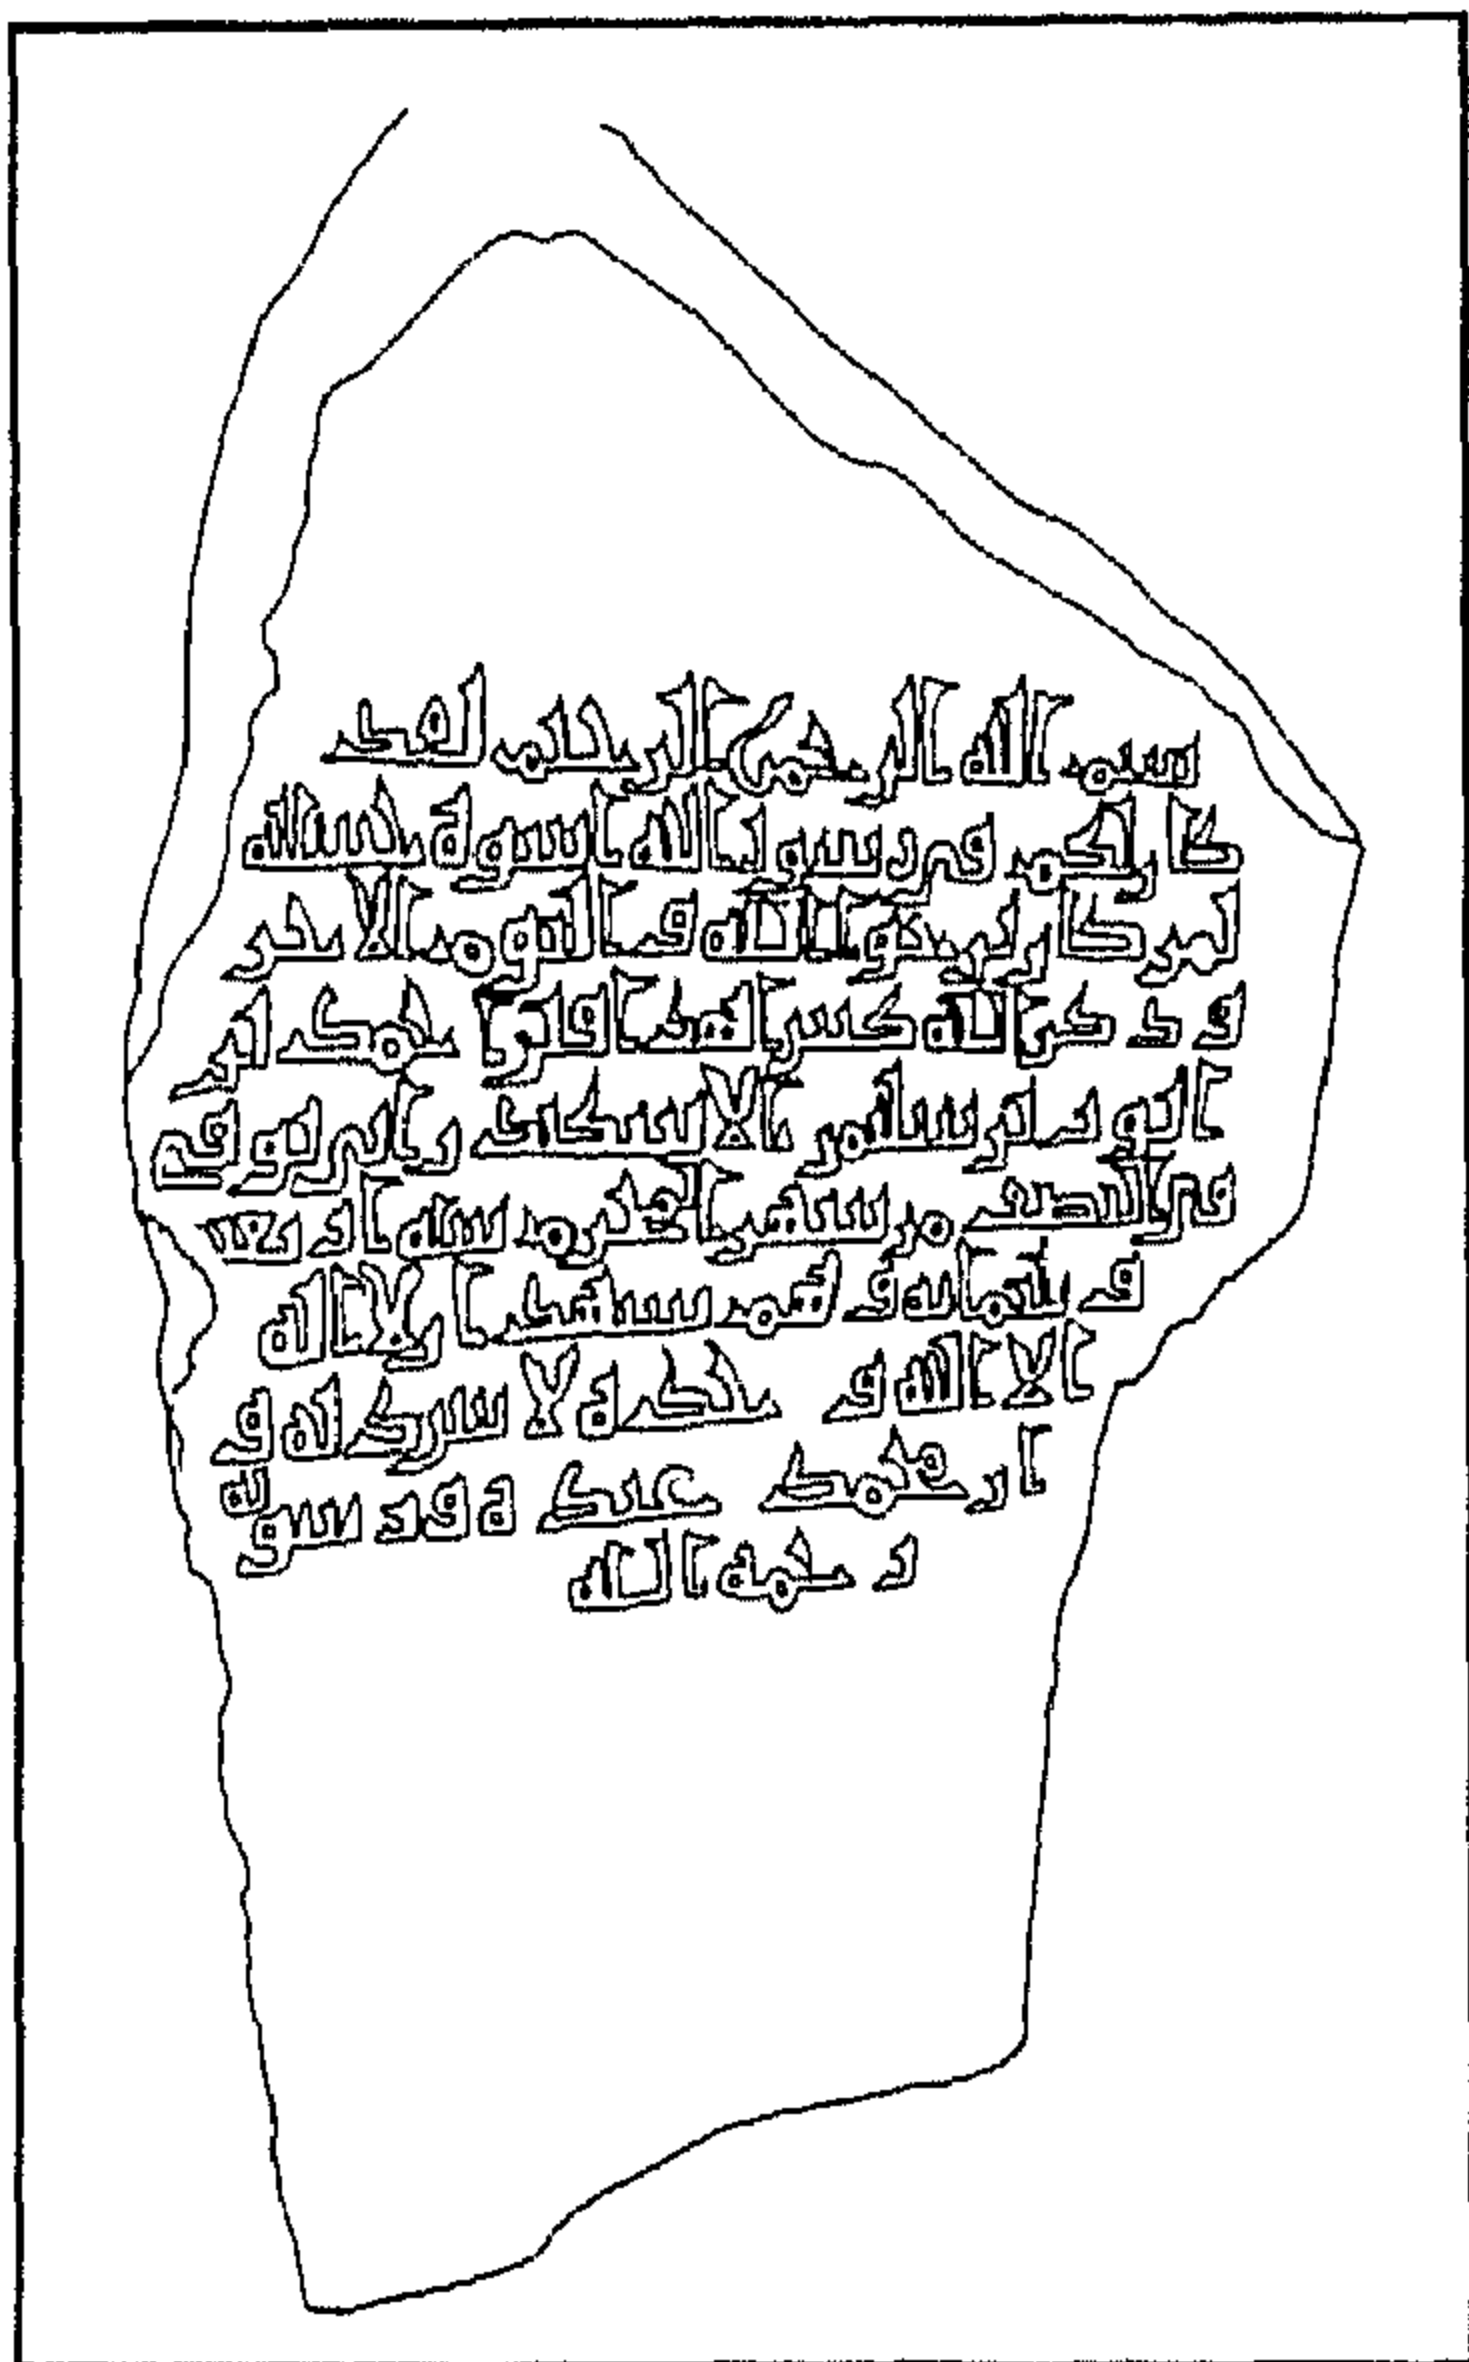 بسم الله الرحمن الرحيم لقد
كان لكم في رسول الله اسوة حسنة
لمن كان يرجو الله واليوم الاخر
وذكر الله كثيرا هذا قبر محمد ابن
بن سالم الاسكندراني توفي
في النصف من شهر المحرم سنة اربعين
وثلثمايه وهو يشهد ان لا اله
الا الله وحده لا شريك له و
ان محمد عبده ورسوله
رحمه الله